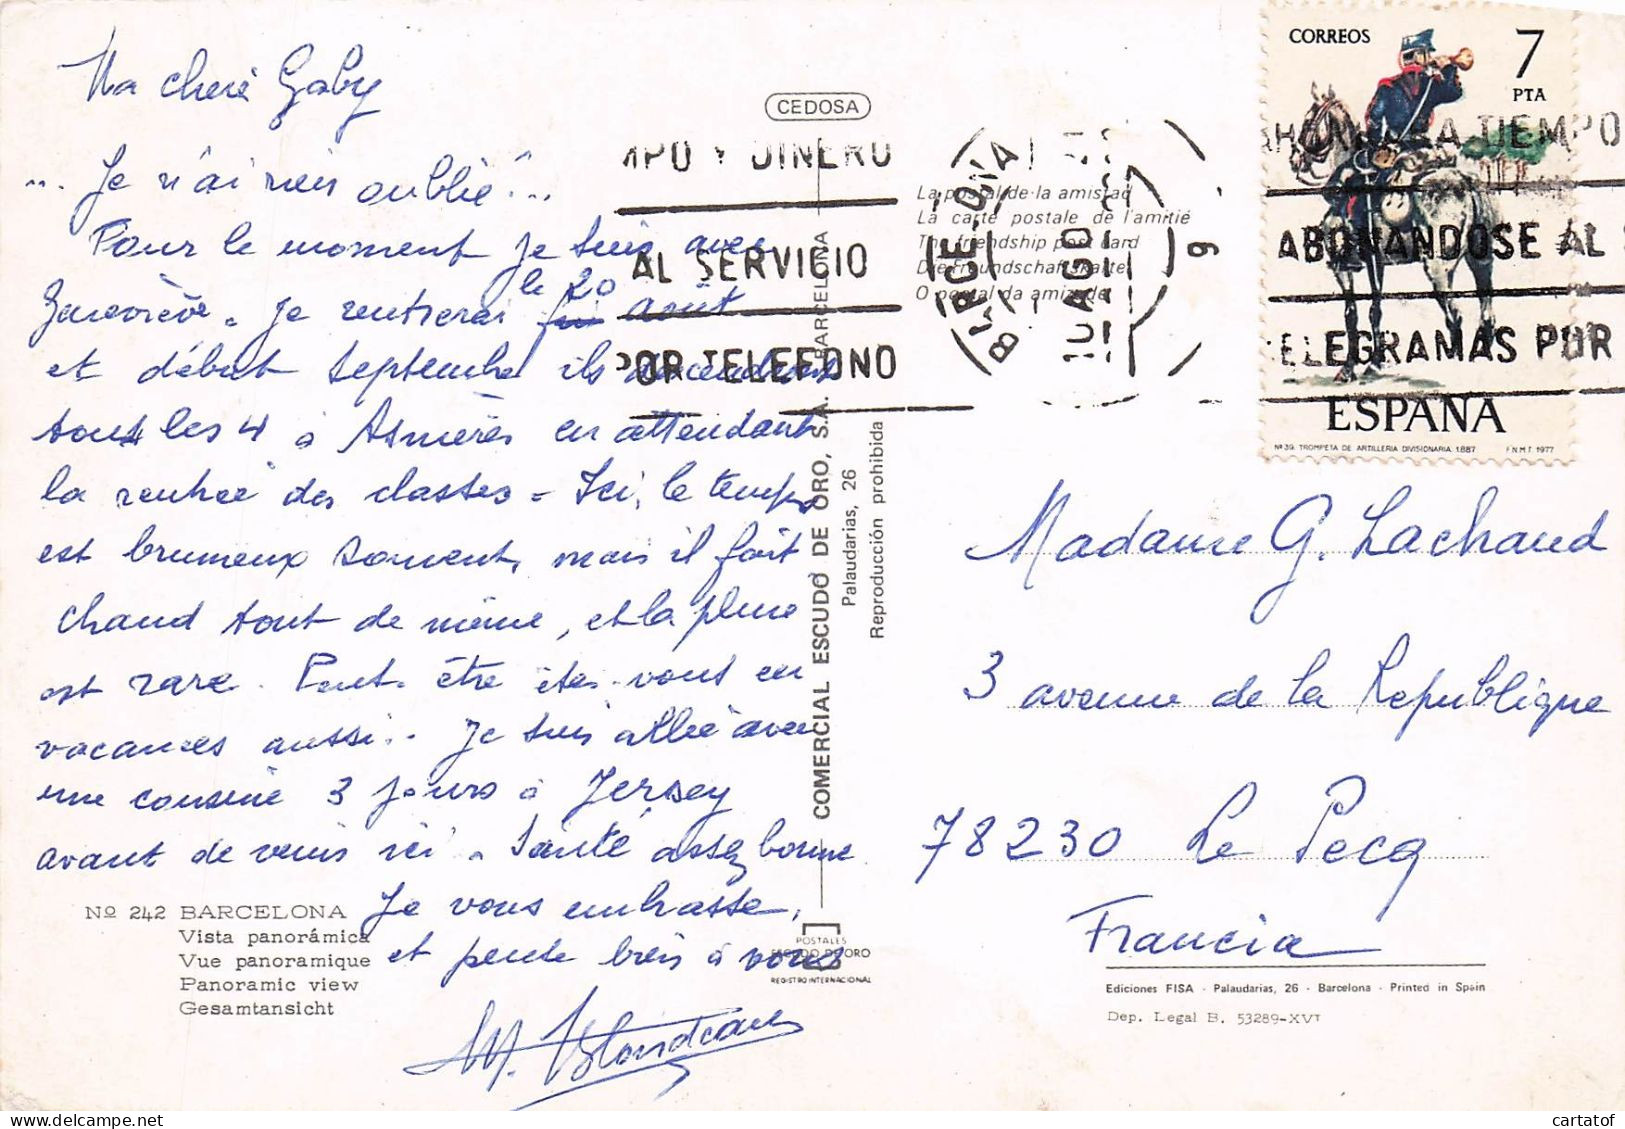 Ma chère Gaby
.. Je n'ai rien oublié...
Pour le moment je suis avec
Geneviève. Je rentrerai le 20 août
et début Septembre ils descendront
tous les 4 à Asnières en attendant
la rentrée des classes - Ici, le temps
est brumeux souvent, mais il fait
chaud tout de même, et la pluie
est rare. Peut-être êtes-vous en
vacances aussi.. Je suis allée avec
une cousine 3 jours à Jersey
avant de venir ici. Santé assez bonne
Je vous embrasse,
et pense bien à vous
M. Blondeau
Nº 242 BARCELONA
Vista panorámica
Vue panoramique
Panoramic view
Gesamtansicht
CEDOSA
COMERCIAL ESCUDO DE ORO, S.A. BARCELONA
Palaudarias, 26
Reproducción prohibida
POSTALES
ESCUDO DE ORO
REGISTRO INTERNACIONAL
La postal de la amistad
La carte postale de l'amitié
The friendship post card
Die Freundschaftskarte
O postal da amizade
MPO Y DINERO
AL SERVICIO
POR TELEFONO
AGO
CORREOS
7
PTA
A TIEMPO
ABONANDOSE AL S
TELEGRAMAS POR
ESPAÑA
Nº 39. TROMPETA DE ARTILLERIA DIVISIONARIA. 1.887 F.N.M.T. 1977
Madame G. Lachaud
3 avenue de la Republique
78230 Le Pecq
Francia
Ediciones FISA - Palaudarias, 26 - Barcelona - Printed in Spain
Dep. Legal B. 53289-XVI
cartatof